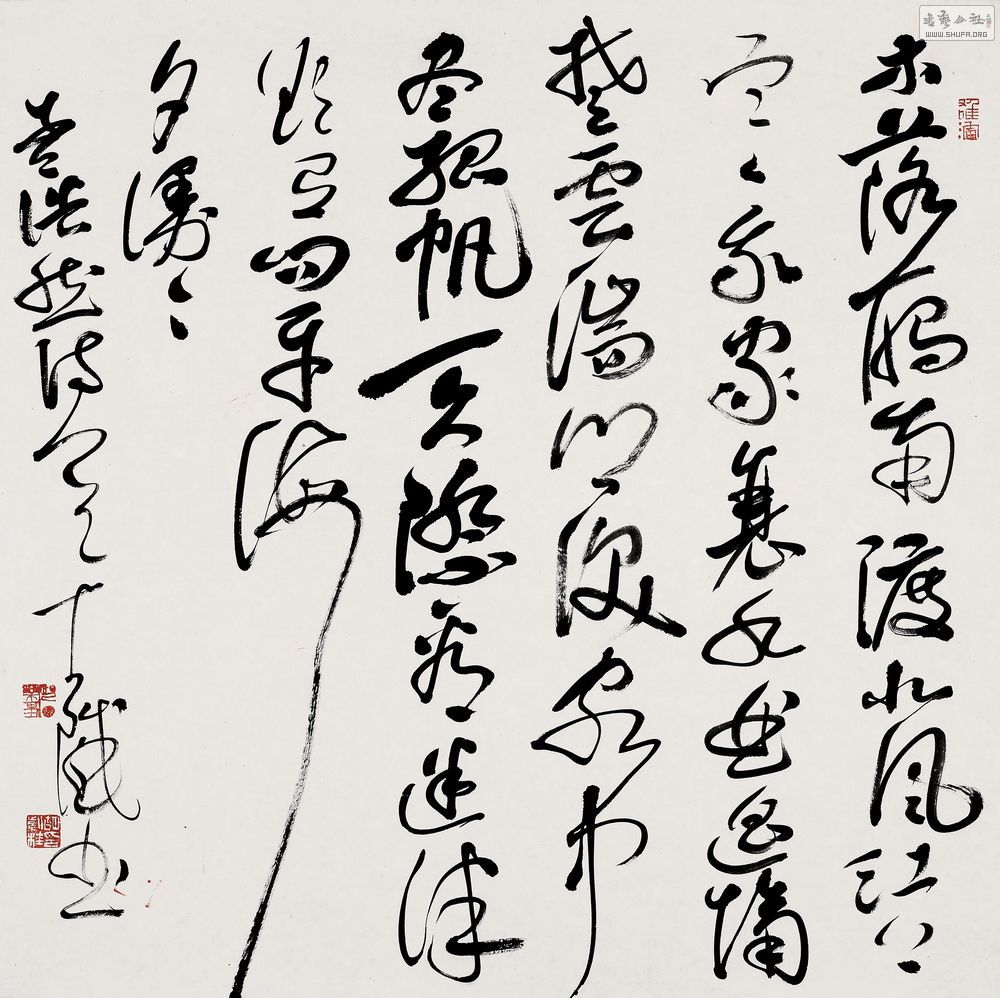 木落鴈南渡北風江上
寒我家襄水曲遥隔
楚雲端鄉淚客中
盡孤帆天際看迷津
欲有問平海
夕漫々
孟浩然詩 書
書藝公社
WWW.SHUFA.ORG